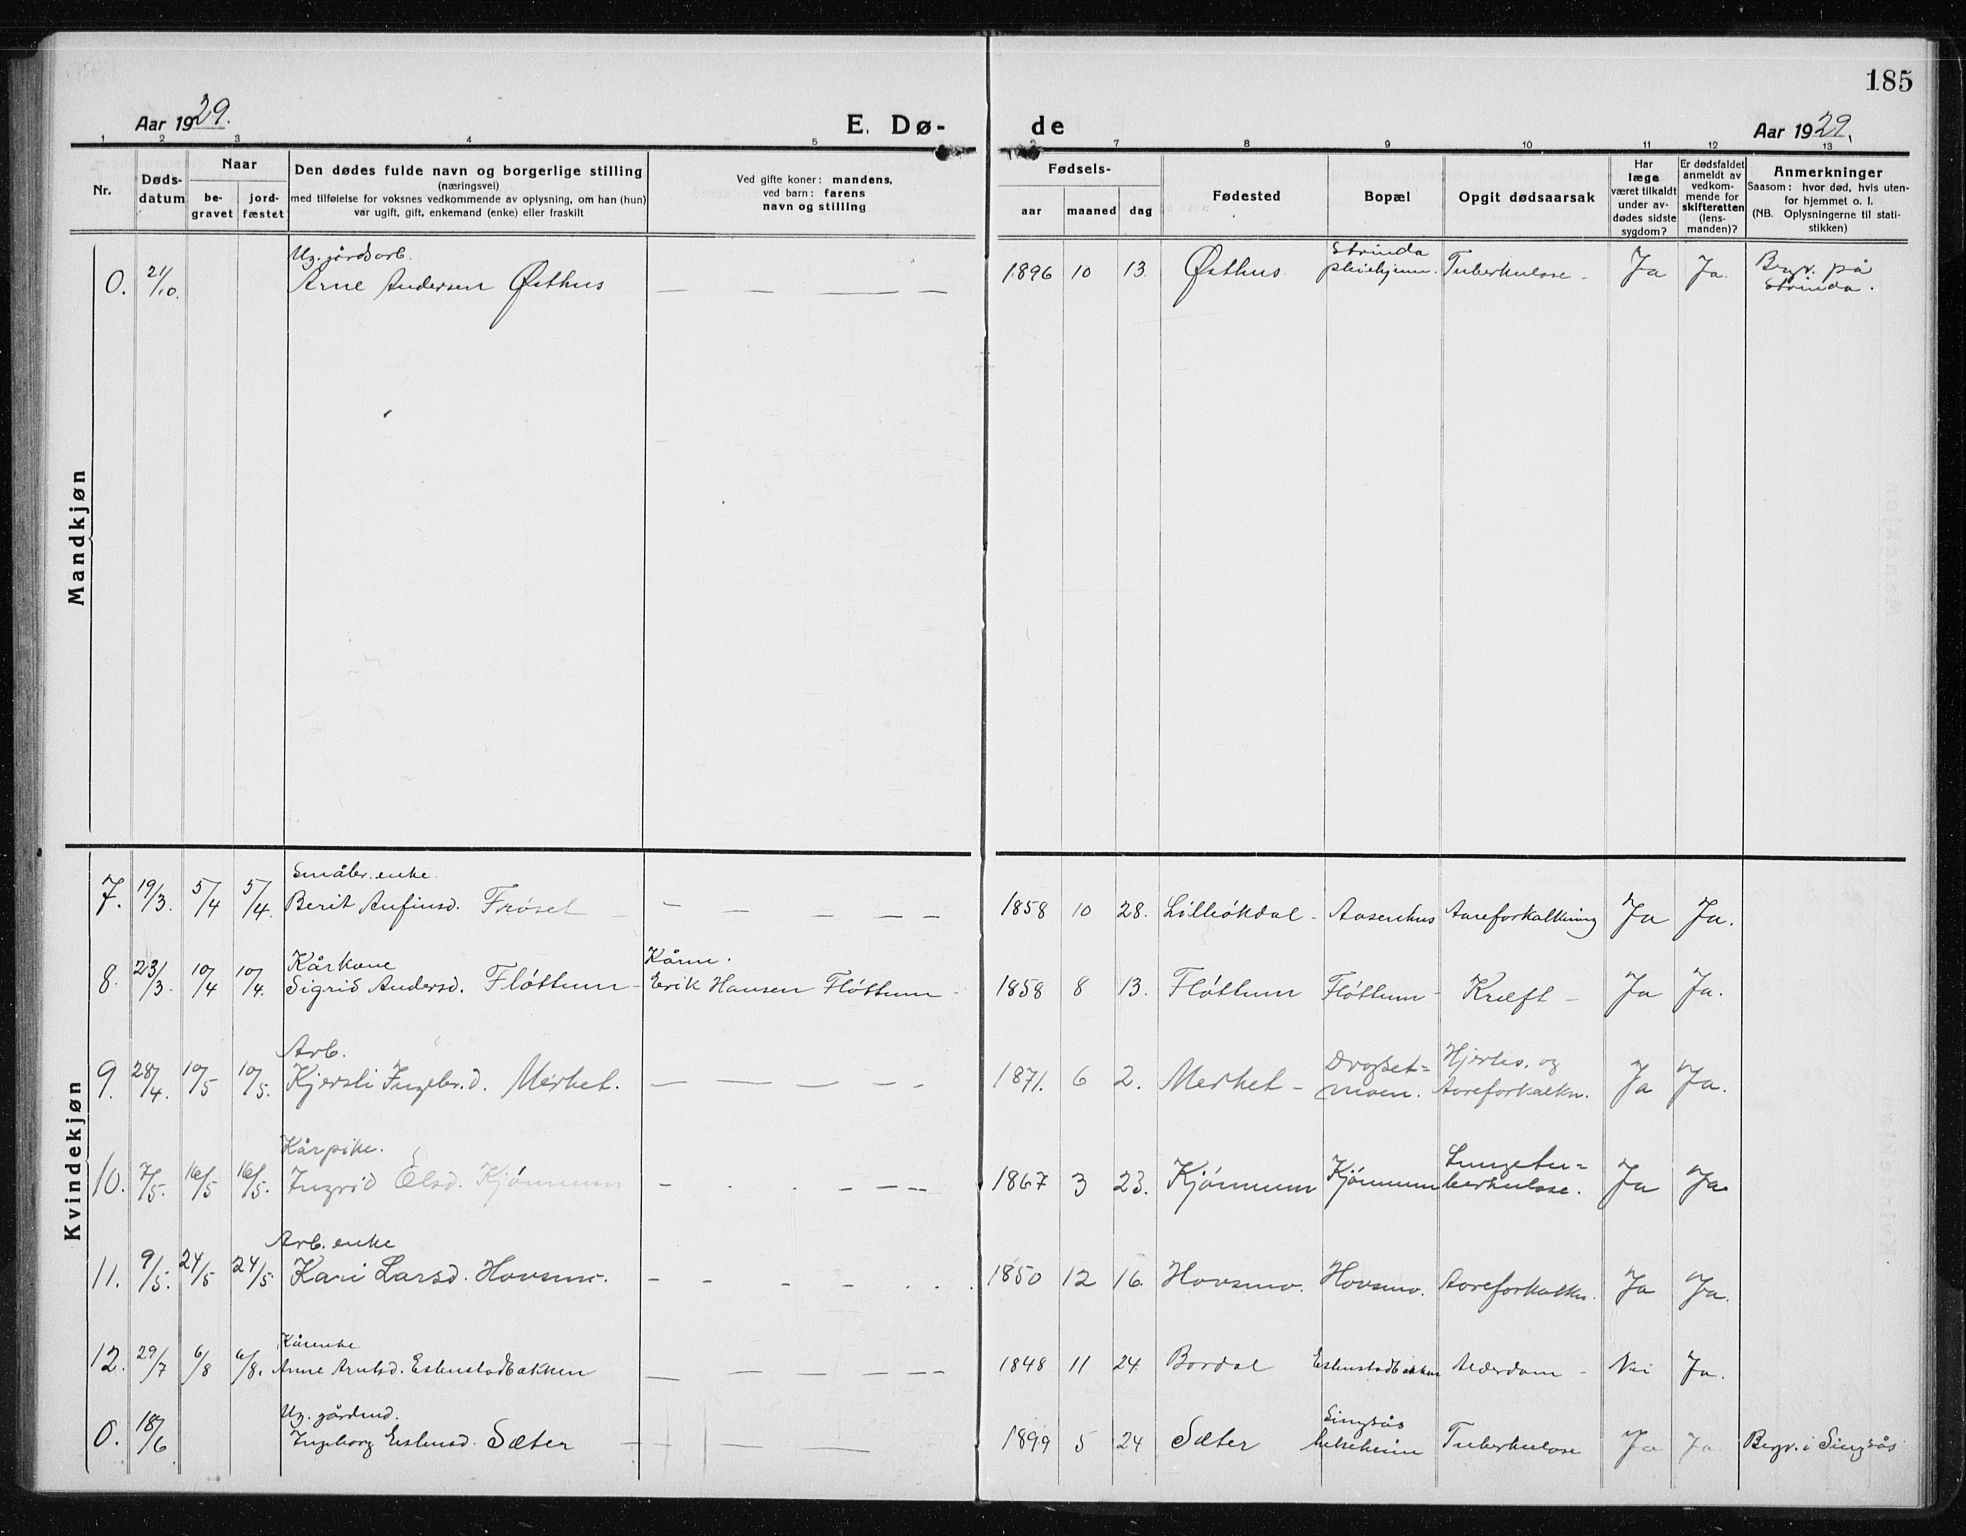 185
Aar 1929.
E. Dø-
de
Aar 1929.
1 2 3 4 5 7 8 9 10 11 12 13
Nr.
Døds-
datum
Naar
be-
gravet
jord-
fæstet
Den dødes fulde navn og borgerlige stilling
(næringsvei)
med tilføielse for voksnes vedkommende av oplysning, om han (hun)
var ugift, gift, enkemand (enke) eller fraskilt
Ved gifte koner: mandens,
ved barn: farens
navn og stilling
Fødsels-
aar maaned dag
Fødested
Bopæl
Opgit dødsaarsak
Har
læge
været tilkaldt
under av-
dødes sidste
sygdom?
Er dødsfaldet
anmeldt av
vedkom-
mende for
skifteretten
(lens-
manden)?
Anmerkninger
Saasom: hvor død, hvis uten-
for hjemmet o. l.
(NB. Oplysningerne til stati-
stikken)
Mandkjøn
Ug. gårdsarb. Strinda Begr. på
0. 21/10. Arne Andersen Østhus — — — — 1896 10 13. Østhus. pleiehjem. Tuberkulose - Ja Ja. Strinda.
Kvindekjøn
Småbr. enke.
7. 19/3. 5/4 5/4. Berit Anfinsd. Frøset — — — — — 1858 10 28. Lilleökdal - Aasenhus Aareforkalkning Ja Ja.
Kårkone Kårm.
8. 23/3. 10/4 10/4. Sigrid Andersd. Fløttum - Erik Hansen Fløttum - 1858 8 13. Fløttum Fløttum - Kræft - Ja Ja.
Arb. Drogset= Hjertes. og
9. 28/4. 10/5 10/5. Kjersti Ingebr.d. Merket. — — — — 1871. 6 2. Merket - moen. Aareforkalkn. Ja Ja.
Kårpike. Lungetu=
10. 7/5. 16/5 16/5. Ingrid Olsd. Kjønnum - - - - - 1867 3 23. Kjønnum Kjønnum berkulose. Ja Ja
Arb. enke
11. 9/5. 24/5 24/5 Kari Larsd. Hovsmo. - - - - 1850 12 16. Hovsmo. Hovsmo. Aareforkalkn. Ja Ja.
Kårenke
12. 29/7 6/8 6/8. Anne Arntsd. Estenstadbakken — — — — 1848 11 24. Bordal Estenstadbakken Alderdom - Nei Ja.
Ug. gårdmd. Singsås
0. 18/6 Ingeborg Estensd. Sæter — — — 1899 5 24 Sæter helseheim Tuberkulose Ja Ja Begr. i Singsås